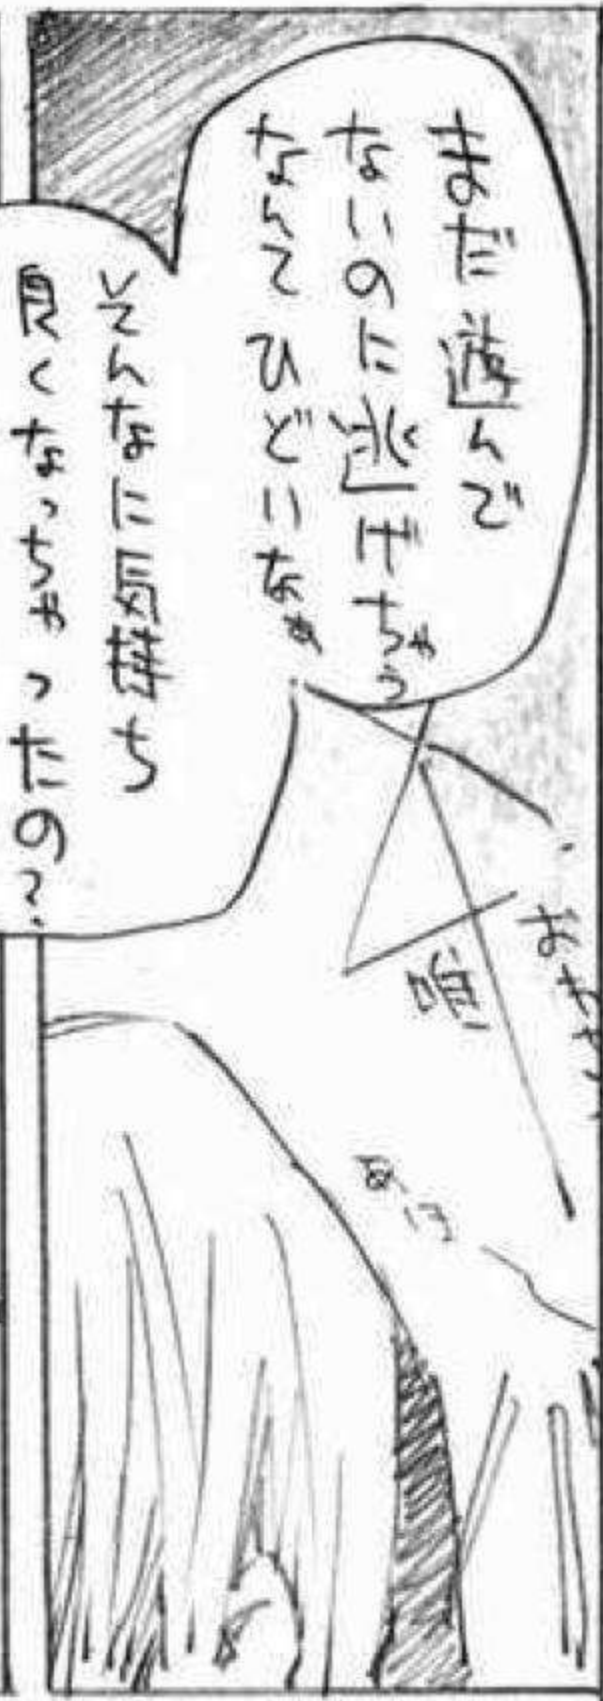 まだ遊んで
ないのに逃げちゃう
なんてひどいなぁ
そんなに気持ち
良くなっちゃったの?
唯